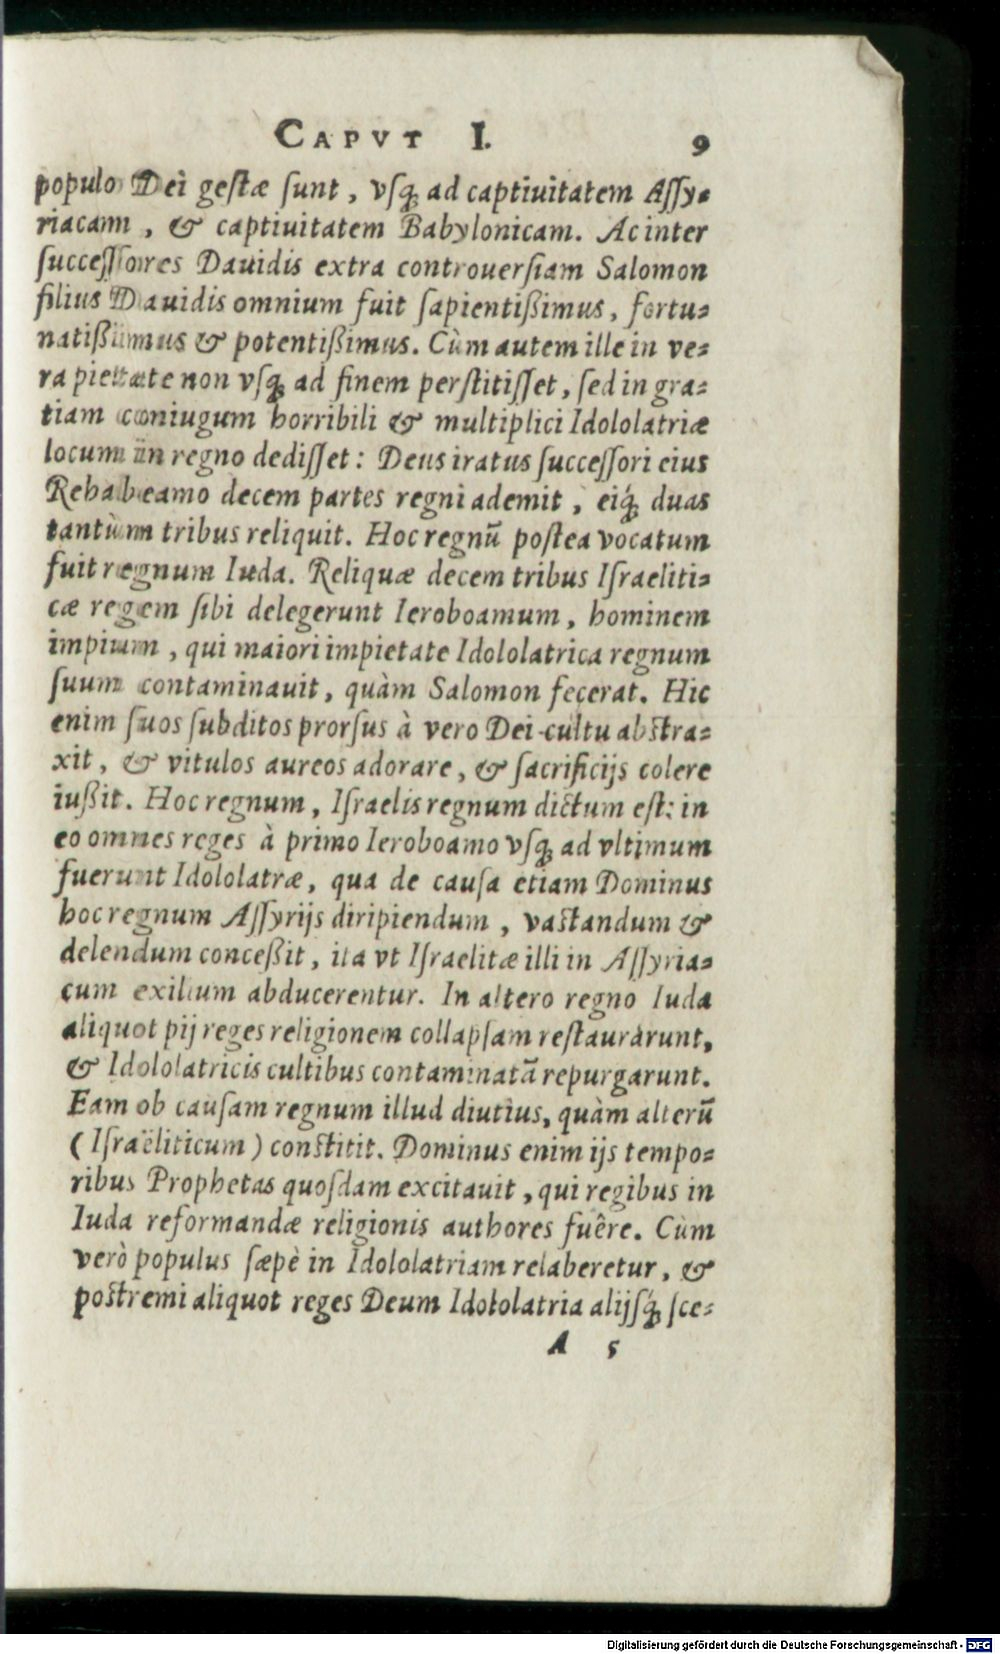 CAPVT I. 9
populo Dei gestæ sunt, vsq́; ad captiuitatem Assy-
riacam, & captiuitatem Babylonicam. Ac inter
successores Dauidis extra controuersiam Salomon
filius Dauidis omnium fuit sapientißimus, fortu-
natißimus & potentißimus. Cùm autem ille in ve-
ra pietate non vsq́; ad finem perstitisset, sed in gra-
tiam coniugum horribili & multiplici Idololatriæ
locum in regno dedisset: Deus iratus successori eius
Rehabeamo decem partes regni ademit, eiq́; duas
tantùm tribus reliquit. Hoc regnū postea vocatum
fuit regnum Iuda. Reliquæ decem tribus Israeliti-
cæ regem sibi delegerunt Ieroboamum, hominem
impium, qui maiori impietate Idololatrica regnum
suum contaminauit, quàm Salomon fecerat. Hic
enim suos subditos prorsus à vero Dei cultu abstra-
xit, & vitulos aureos adorare, & sacrificijs colere
iußit. Hoc regnum, Israelis regnum dictum est: in
eo omnes reges à primo Ieroboamo vsq́; ad vltimum
fuerunt Idololatræ, qua de causa etiam Dominus
hoc regnum Assyrijs diripiendum, vastandum &
delendum conceßit, ita vt Israelitæ illi in Assyria-
cum exilium abducerentur. In altero regno Iuda
aliquot pij reges religionem collapsam restaurârunt,
& Idololatricis cultibus contaminatā repurgarunt.
Eam ob causam regnum illud diutius, quàm alterū
(Israëliticum) constitit. Dominus enim ijs tempo-
ribus Prophetas quosdam excitauit, qui regibus in
Iuda reformandæ religionis authores fuêre. Cùm
verò populus sæpè in Idololatriam relaberetur, &
postremi aliquot reges Deum Idololatria alijsq́; sce-
A 5
Digitalisierung gefördert durch die Deutsche Forschungsgemeinschaft - DFG